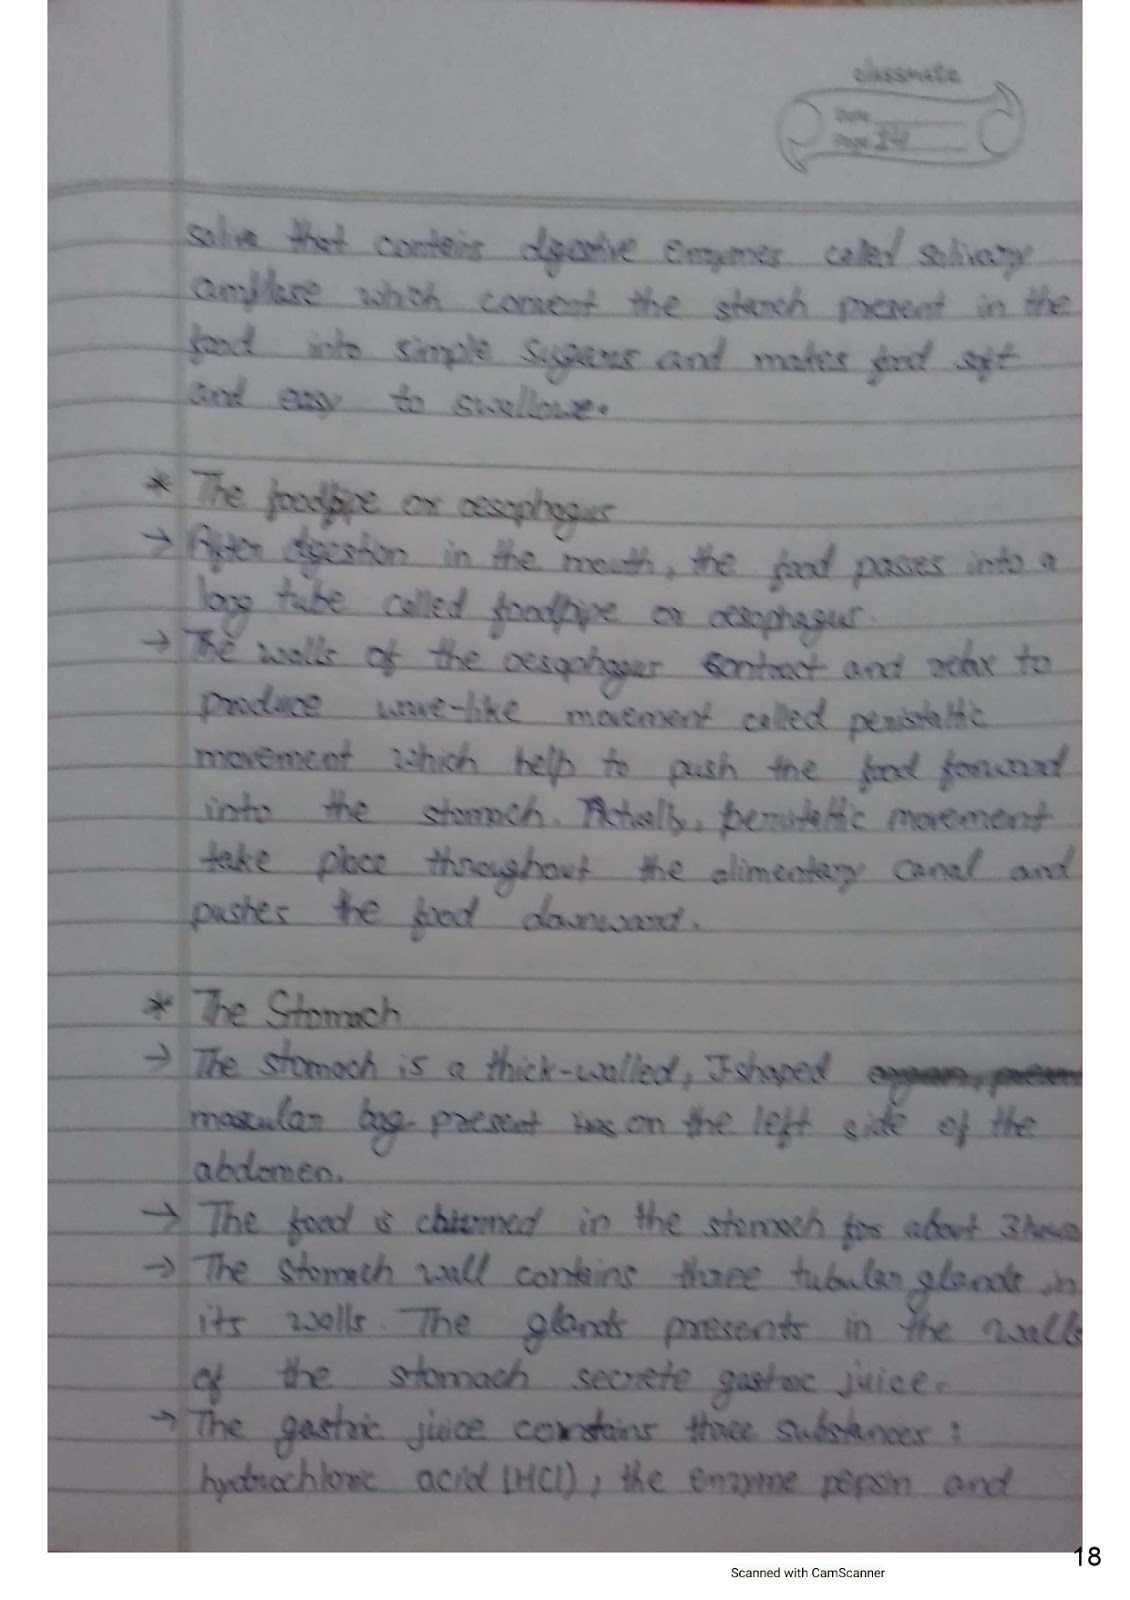 classmate
Date
Page 14
saliva that contains digestive enzymes called salivary
amylase which convert the starch present in the
food into simple sugars and makes food soft
and easy to swallow.
* The foodpipe or oesophagus
→ After digestion in the mouth, the food passes into a
long tube called foodpipe or oesophagus.
→ The walls of the oesophagus contract and relax to
produce wave-like movement called peristaltic
movement which help to push the food forward
into the stomach. Actually, peristaltic movement
take place throughout the alimentary canal and
pushes the food downward.
* The Stomach
→ The stomach is a thick-walled, J-shaped
muscular bag present on the left side of the
abdomen.
→ The food is churned in the stomach for about 3 hours
→ The stomach wall contains three tubular glands in
its walls. The glands presents in the walls
of the stomach secrete gastric juice.
→ The gastric juice contains three substances:
hydrochloric acid (HCl), the enzyme pepsin and
18
Scanned with CamScanner